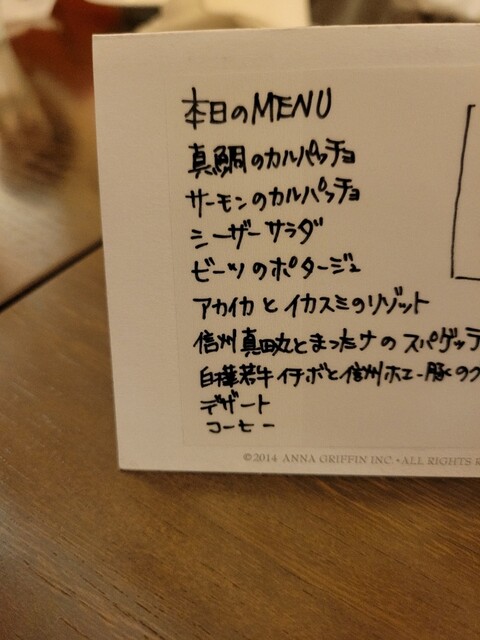 本日のMENU
真鯛のカルパッチョ
サーモンのカルパッチョ
シーザーサラダ
ビーツのポタージュ
アカイカとイカスミのリゾット
信州真田丸とまったけの スパゲッテ
白樺若牛イチボと信州ホエー豚のグ
デザート
コーヒー
©2014 ANNA GRIFFIN INC. •ALL RIGHTS R